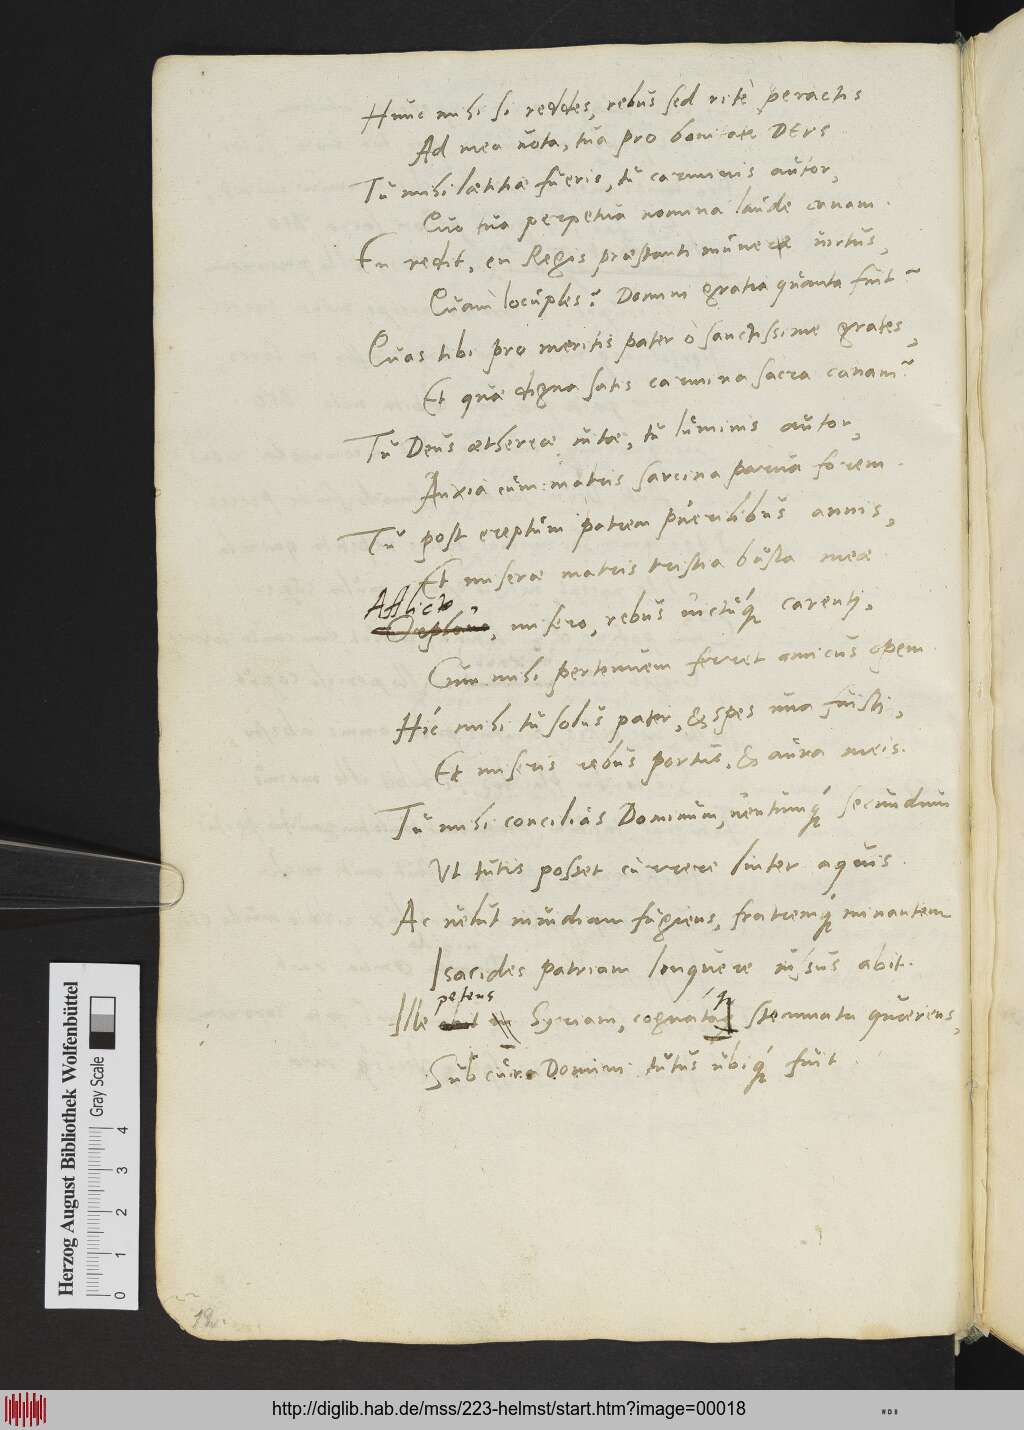 Hunc mihi si reddes, rebus sed ritè peractis
Ad mea uota, tua pro bonitate DEVS
Tu mihi lætitiæ fueris, tu carminis autor,
Quo tua perpetua nomina laude canam.
En redit, en Regis præstanti munere uirtus,
Quàm locuples? Domini gratia quanta fuit?
Quas tibi pro meritis pater ò sanctissime grates,
Et quæ digna satis carmina sacra canam?
Tu Deus æthereæ uitæ, tu luminis autor,
Anxia cùm matris sarcina parua forem.
Tu post ereptum patrem puerilibus annis,
Et miseræ matris tristia busta meæ
Afflicto
Orphano, misero, rebus uictuq́ carenti,
Cum mihi pertenuem ferret amicus opem.
Híc mihi tu solus pater, & spes una fuisti,
Et miseris rebus portus, & aura meis.
Tu mihi concilias Dominum, uentumq́ secundum
Vt tutis posset currere linter aquis.
Ac uelut inuidiam fugiens, fratremq́ minantem
Isacides patriam linquere iussus abit.
petens q́
Ille abit in Syriam, cognata stemmata quærens,
Sub cura Domini tutus ubiq́ fuit
12.
Herzog August Bibliothek Wolfenbüttel
Gray Scale
0 1 2 3 4
http://diglib.hab.de/mss/223-helmst/start.htm?image=00018